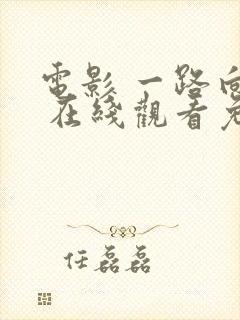 電影 一路向
在綫觀看免
任磊磊